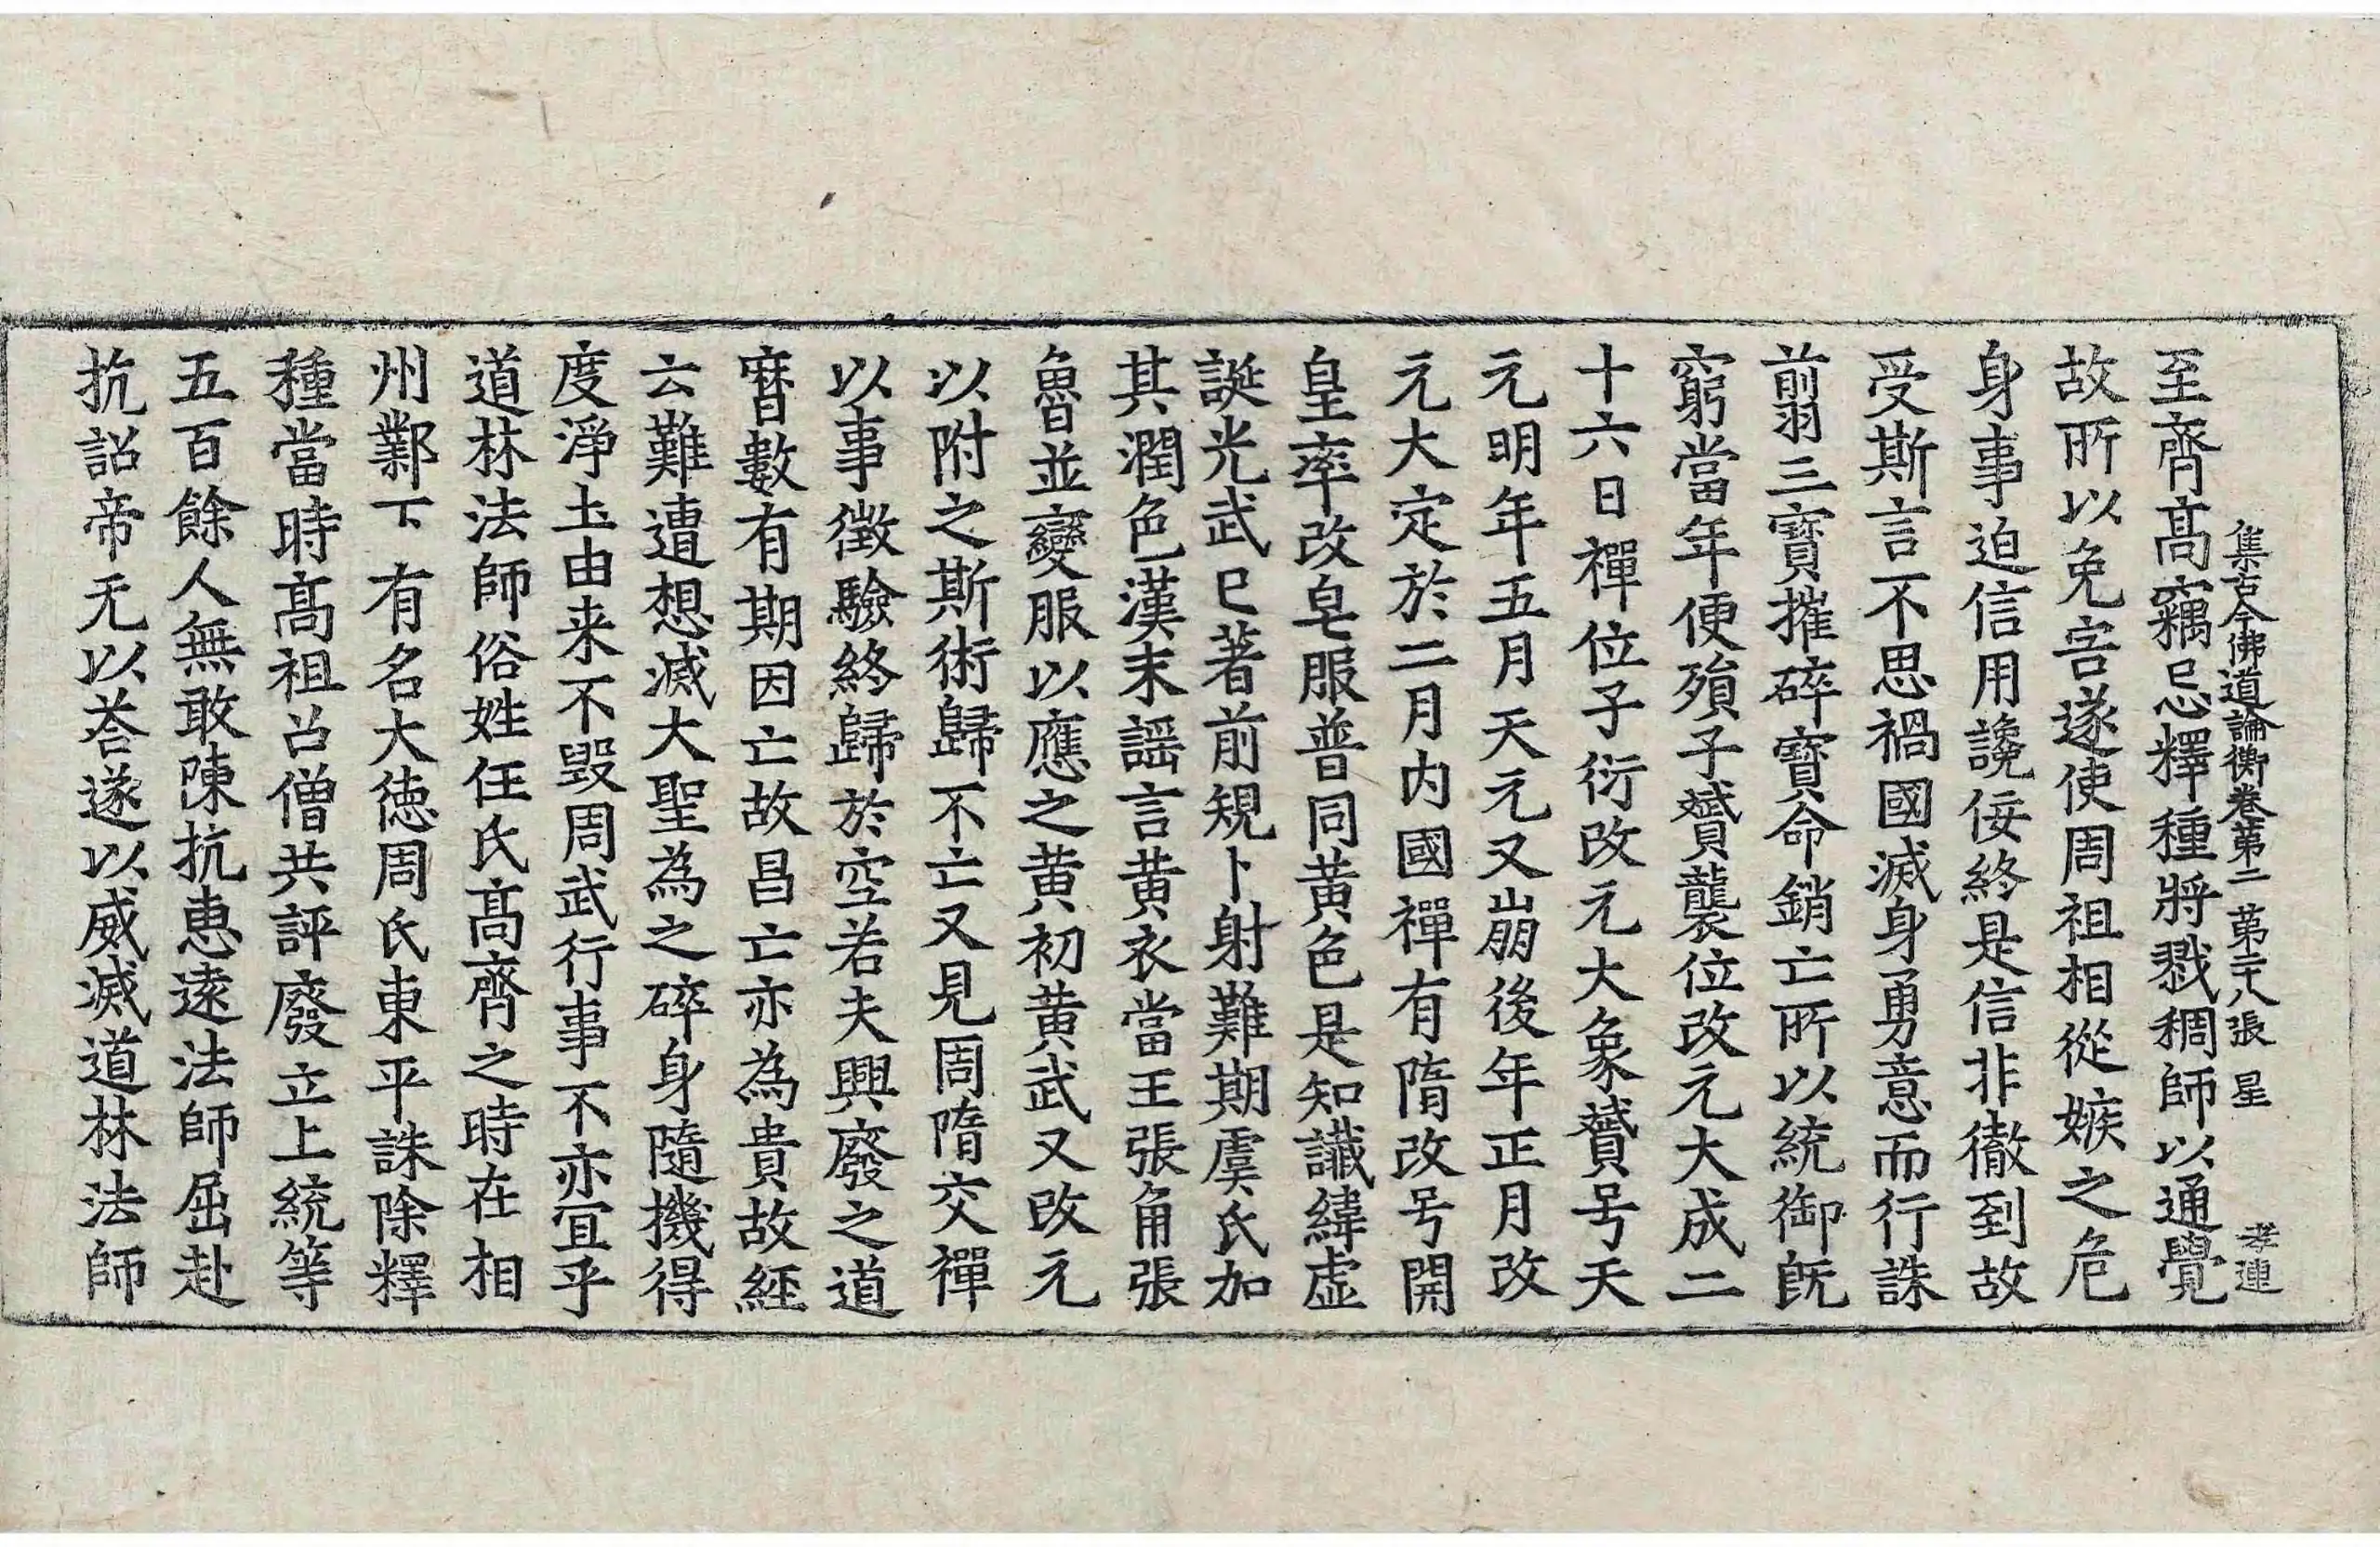 集古今佛道論衡卷第二 第二十八張 星 孝連
至齊髙竊忌釋種將戮稠師以通覺
故所以免害遂使周祖相從嫉之危
身事迫信用讒佞終是信非徹到故
受斯言不思禍國滅身勇意而行誅
翦三寳摧碎寳命銷亡所以統御旣
窮當年便殞子贇襲位改元大成二
十六日禪位子衍改元大象贇号天
元明年五月天元又崩後年正月改
元大定於二月内國禪有隋改号開
皇率改皂服普同黃色是知讖緯虛
誕光武已著前規卜射難期虞氏加
其潤色漢末謡言黃衣當王張角張
魯並變服以應之黃初黃武又改元
以附之斯術歸不亡又見周隋交禪
以事徵驗終歸於空若夫興廢之道
曆數有期因亡故昌亡亦為貴故經
云難遭想滅大聖為之碎身隨機得
度淨土由来不毀周武行事不亦宜乎
道林法師俗姓任氏髙齊之時在相
州鄴下有名大德周氏東平誅除釋
種當時髙祖召僧共評廢立上統等
五百餘人無敢陳抗惠遠法師屈赴
抗詔帝无以荅遂以威滅道林法師